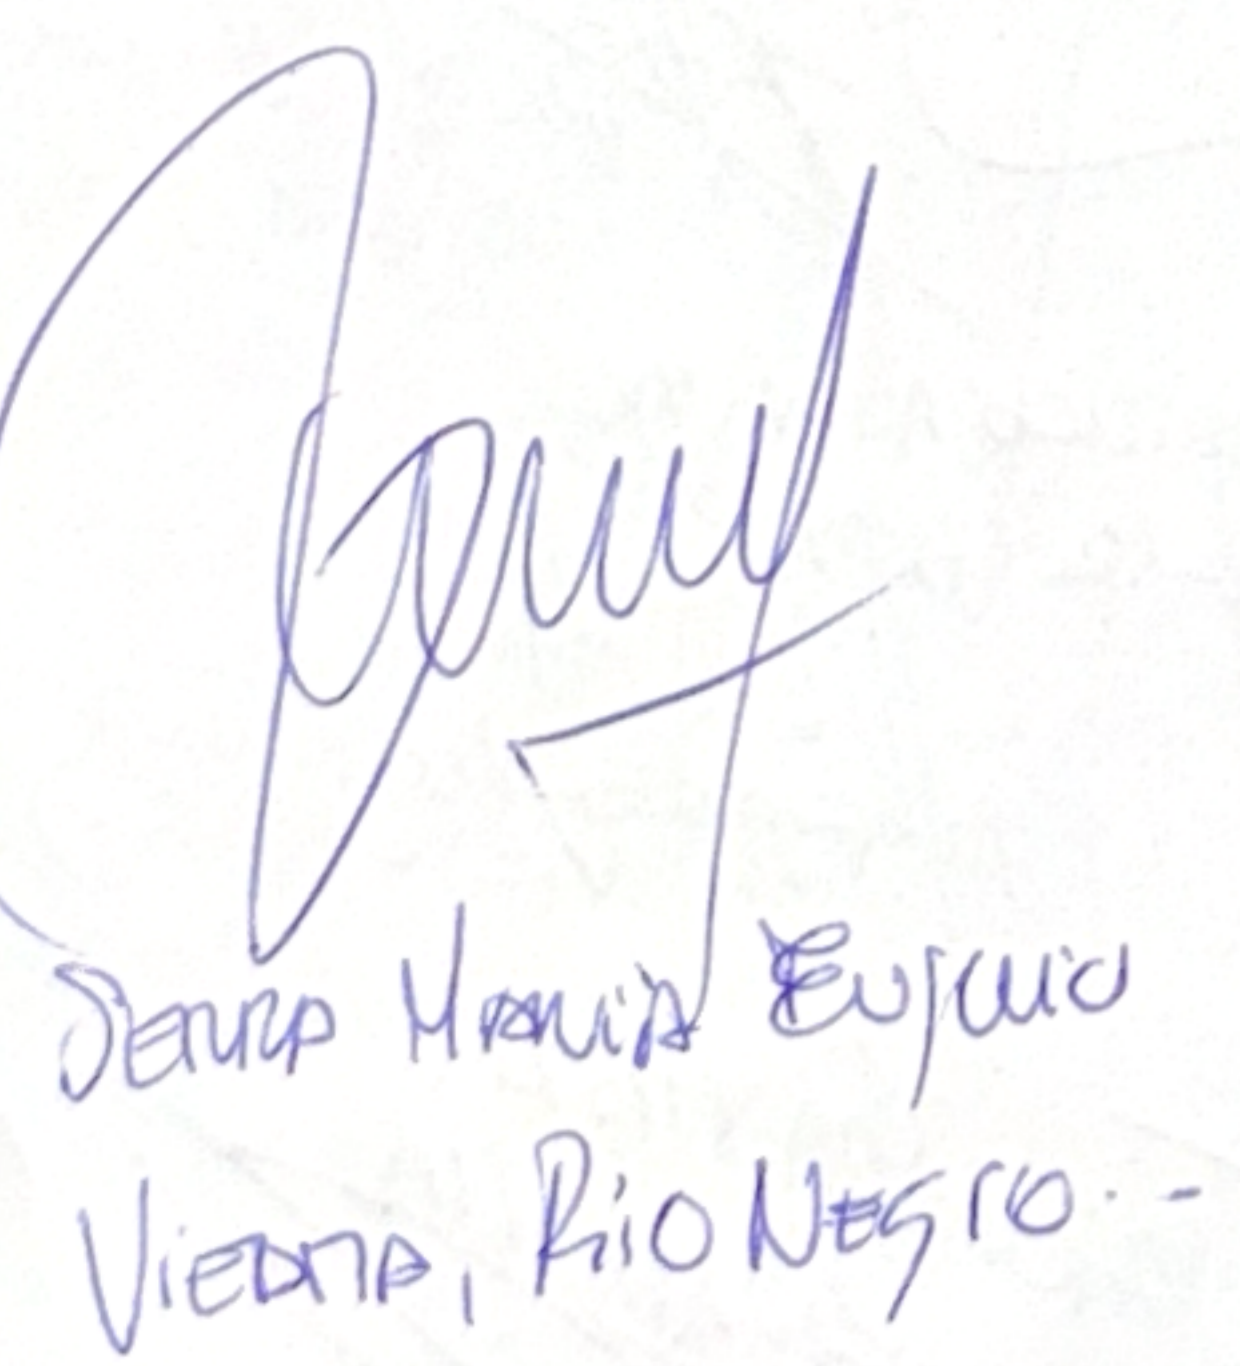 SERRA MARIA EUgenia
VIEDMA, RiO NEGrO.-